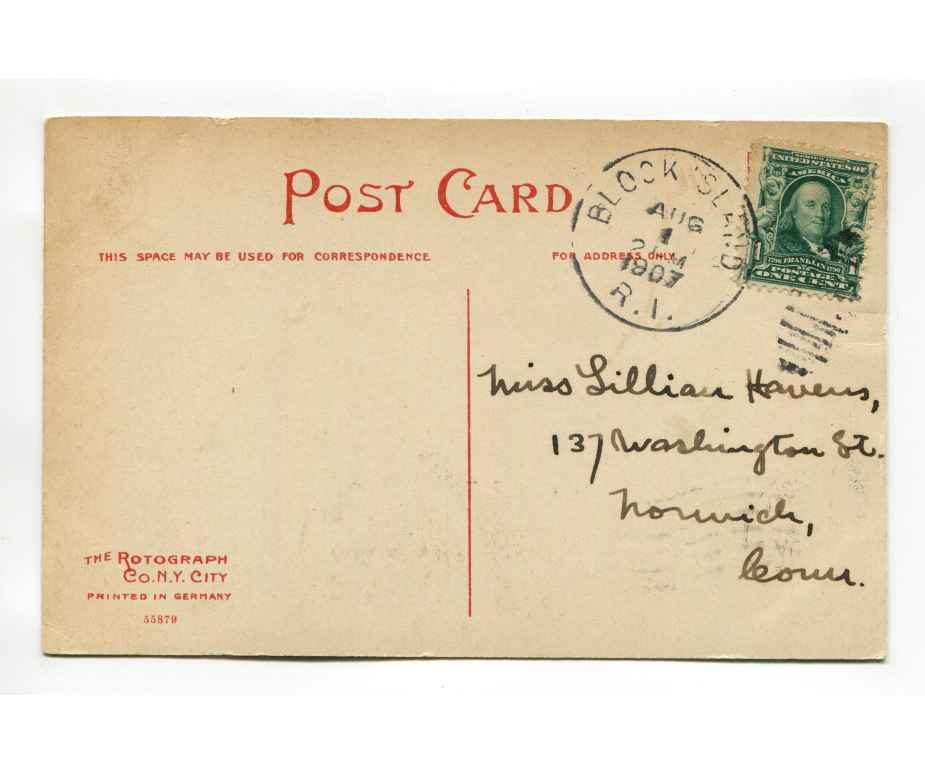 POST CARD
THIS SPACE MAY BE USED FOR CORRESPONDENCE
FOR ADDRESS ONLY
BLOCK ISLAND
AUG
1
2 PM
1907
R.I.
UNITED STATES OF
AMERICA
1706 FRANKLIN 1790
POSTAGE
1 ONE CENT 1
Miss Lillian Havens,
137 Washington St.
Norwich,
Conn.
THE ROTOGRAPH
CO. N.Y. CITY
PRINTED IN GERMANY
55879